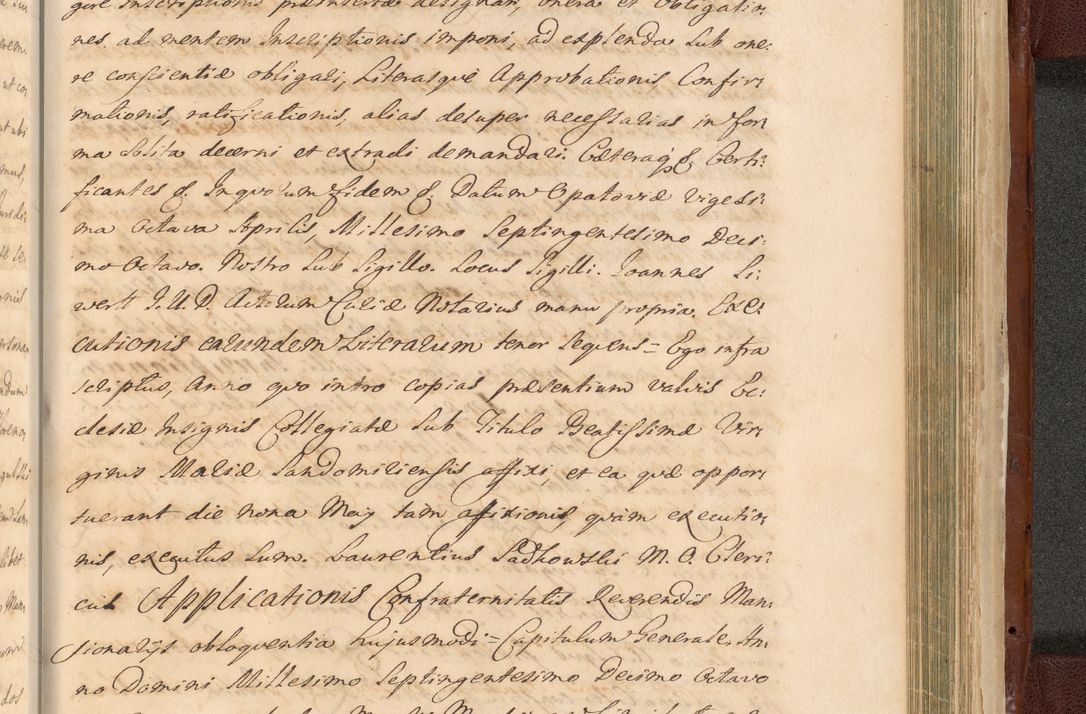 gere Inscriptionis præinsertæ designari, onera et obligatio:
nes ad mentem Inscriptionis imponi, ad explenda sub one:
re conscientiæ obligari, Literasque Approbationis Confir:
mationis, ratificationis, alias desuper necessarias in for:
ma solita decerni et extradi demandari. Cæteraque &c. Certi:
ficantes &c. In quorum fidem &c. Datum Opatoviæ vigesi:
ma Octava Aprilis, Millesimo Septingentesimo Deci:
mo Octavo. Nostro sub Sigillo. Locus Sigilli. Joannes Si:
wert J. U. D. Actorum Curiæ Notarius manu propria. Exe:
cutionis earundem Literarum tenor sequens = Ego infra
scriptus, Anno quo intro copias præsentium valvis Ec:
clesiæ Insignis Collegiatæ sub Titulo Beatissimæ Vir:
ginis Mariæ Sandomiriensis affixi, et ea quæ oppor:
tuerant die nona May tam affixionis, quam executio:
nis, executus sum. Laurentius Sadkowski M. O. Cleri:
cus Applicationis Confraternitatis Reverendis Man:
sionarijs obloquentia hujusmodi = Capitulum Generale An:
no Domini Millesimo Septingentesimo Decimo Octavo